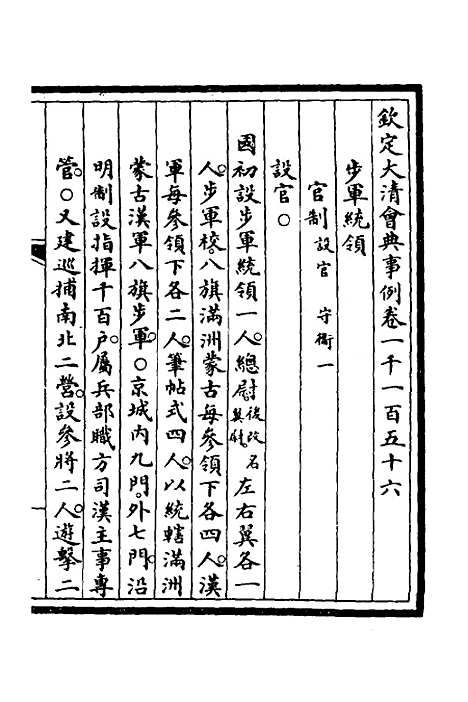 欽定大清會典事例卷一千一百五十六
步軍統領
官制 設官 守衛一
設官○
國初設步軍統領一人。總尉後改名翼尉。左右翼各一
人。步軍校。八旗滿洲蒙古每參領下各四人。漢
軍每參領下各二人。筆帖式四人。以統轄滿洲
蒙古漢軍八旗步軍。○京城內九門。外七門。沿
明制設指揮千百戶。屬兵部職方司漢主事專
管。○又建巡捕南北二營。設參將二人。遊擊二